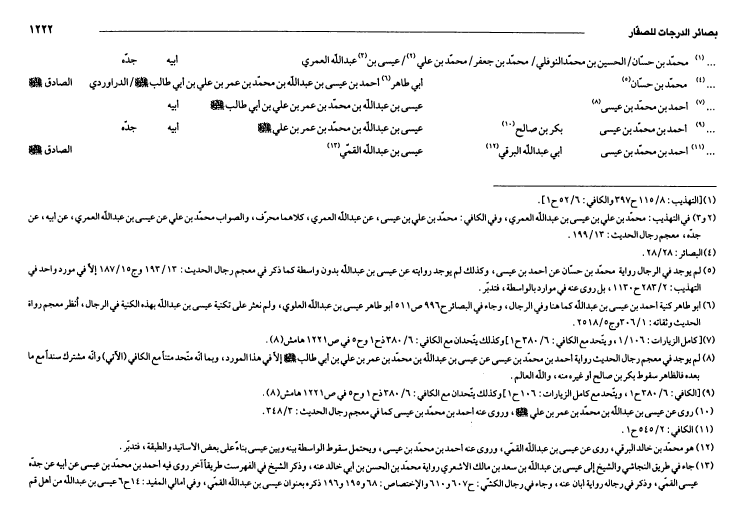 بصائر الدرجات للصفّار ١٢٢٢
...(١) محمّد بن حسّان/ الحسين بن محمّد النوفلي/ محمّد بن جعفر/ محمّد بن علي(٢)/ عيسى بن(٣) عبدالله العمري أبيه جدّه
...(٤) محمّد بن حسّان(٥) أبي طاهر(٦) أحمد بن عيسى بن عبدالله بن محمّد بن عمر بن علي بن أبي طالب/ الدراوردي الصادق
...(٧) أحمد بن محمّد بن عيسى(٨) عيسى بن عبدالله بن محمّد بن عمر بن علي بن أبي طالب أبيه
...(٩) أحمد بن محمّد بن عيسى بكر بن صالح(١٠) عيسى بن عبدالله بن محمّد بن عمر بن علي أبيه جدّه
...(١١) أحمد بن محمّد بن عيسى أبي عبدالله البرقي(١٢) عيسى بن عبدالله القمّي(١٣) الصادق
(١) [التهذيب: ١١٥/٨ ح٣٩٧ والكافي: ٥٢/٦ ح١].
(٢ و٣) في التهذيب: محمّد بن علي بن عيسى بن عبدالله العمري، وفي الكافي: محمّد بن علي بن عيسى، عن عبدالله العمري، كلاهما محرّف، والصواب محمّد بن علي عن عيسى بن عبدالله العمري، عن أبيه، عن
جدّه، معجم رجال الحديث: ١٩٩/١٣.
(٤) البصائر: ٢٨/٢٨.
(٥) لم يوجد في الرجال رواية محمّد بن حسّان عن أحمد بن عيسى، وكذلك لم يوجد روايته عن عيسى بن عبدالله بدون واسطة كما ذكر في معجم رجال الحديث: ١٩٣/١٣ وج١٨٧/١٥ إلاّ في مورد واحد في
التهذيب: ٢٨٣/٢ ح١١٣٠، بل روى عنه في موارد بالواسطة، فتدبّر.
(٦) أبو طاهر كنية أحمد بن عيسى بن عبدالله كما هنا وفي الرجال، وجاء في البصائر ح٩٩٦ ص٥١١ أبو طاهر عيسى بن عبدالله العلوي، ولم نعثر على تكنية عيسى بن عبدالله بهذه الكنية في الرجال، اُنظر معجم رواة
الحديث وثقاته: ٣٠٦/١ وج٢٥١٨/٥.
(٧) [كامل الزيارات: ١٠٦/١، ويتّحد مع الكافي: ٣٨٠/٦ ح١] وكذلك يتّحدان مع الكافي: ٣٨٠/٦ ذح١ وح٥ في ص١٢٢١ هامش(٨).
(٨) لم يوجد في معجم رجال الحديث رواية أحمد بن محمّد بن عيسى عن عيسى بن عبدالله بن محمّد بن عمر بن علي بن أبي طالب إلاّ في هذا المورد، وبما انّه متّحد متناً مع الكافي (الآتي) وانّه مشترك سنداً مع ما
بعده فالظاهر سقوط بكر بن صالح أو غيره منه، والله العالم.
(٩) [الكافي: ٣٨٠/٦ ح١، ويتّحد مع كامل الزيارات: ١٠٦ ح١] وكذلك يتّحدان مع الكافي: ٣٨٠/٦ ذح١ وح٥ في ص١٢٢١ هامش(٨).
(١٠) روى عن عيسى بن عبدالله بن محمّد بن عمر بن علي، وروى عنه أحمد بن محمّد بن عيسى كما في معجم رجال الحديث: ٣٤٨/٣.
(١١) الكافي: ٥٤٥/٢ ح١.
(١٢) هو محمّد بن خالد البرقي، روى عن عيسى بن عبدالله القمّي، وروى عنه أحمد بن محمّد بن عيسى، ويحتمل سقوط الواسطة بينه وبين عيسى بناءً على بعض الأسانيد والطبقة، فتدبّر.
(١٣) جاء في طريق النجاشي والشيخ إلى عيسى بن عبدالله بن سعد بن مالك الأشعري رواية محمّد بن الحسن بن أبي خالد عنه، وذكر الشيخ في الفهرست طريقاً آخر روى فيه أحمد بن محمّد بن عيسى عن أبيه عن جدّه
عيسى القمّي، وذكر في رجاله رواية أبان عنه، وجاء في رجال الكشّي: ح٦٠٧ و٦١٠ والإختصاص: ٦٨ و١٩٥ و١٩٦ ذكره بعنوان عيسى بن عبدالله القمّي، وفي أمالي المفيد: ١٤٠ح٦ عيسى بن عبدالله من أهل قم